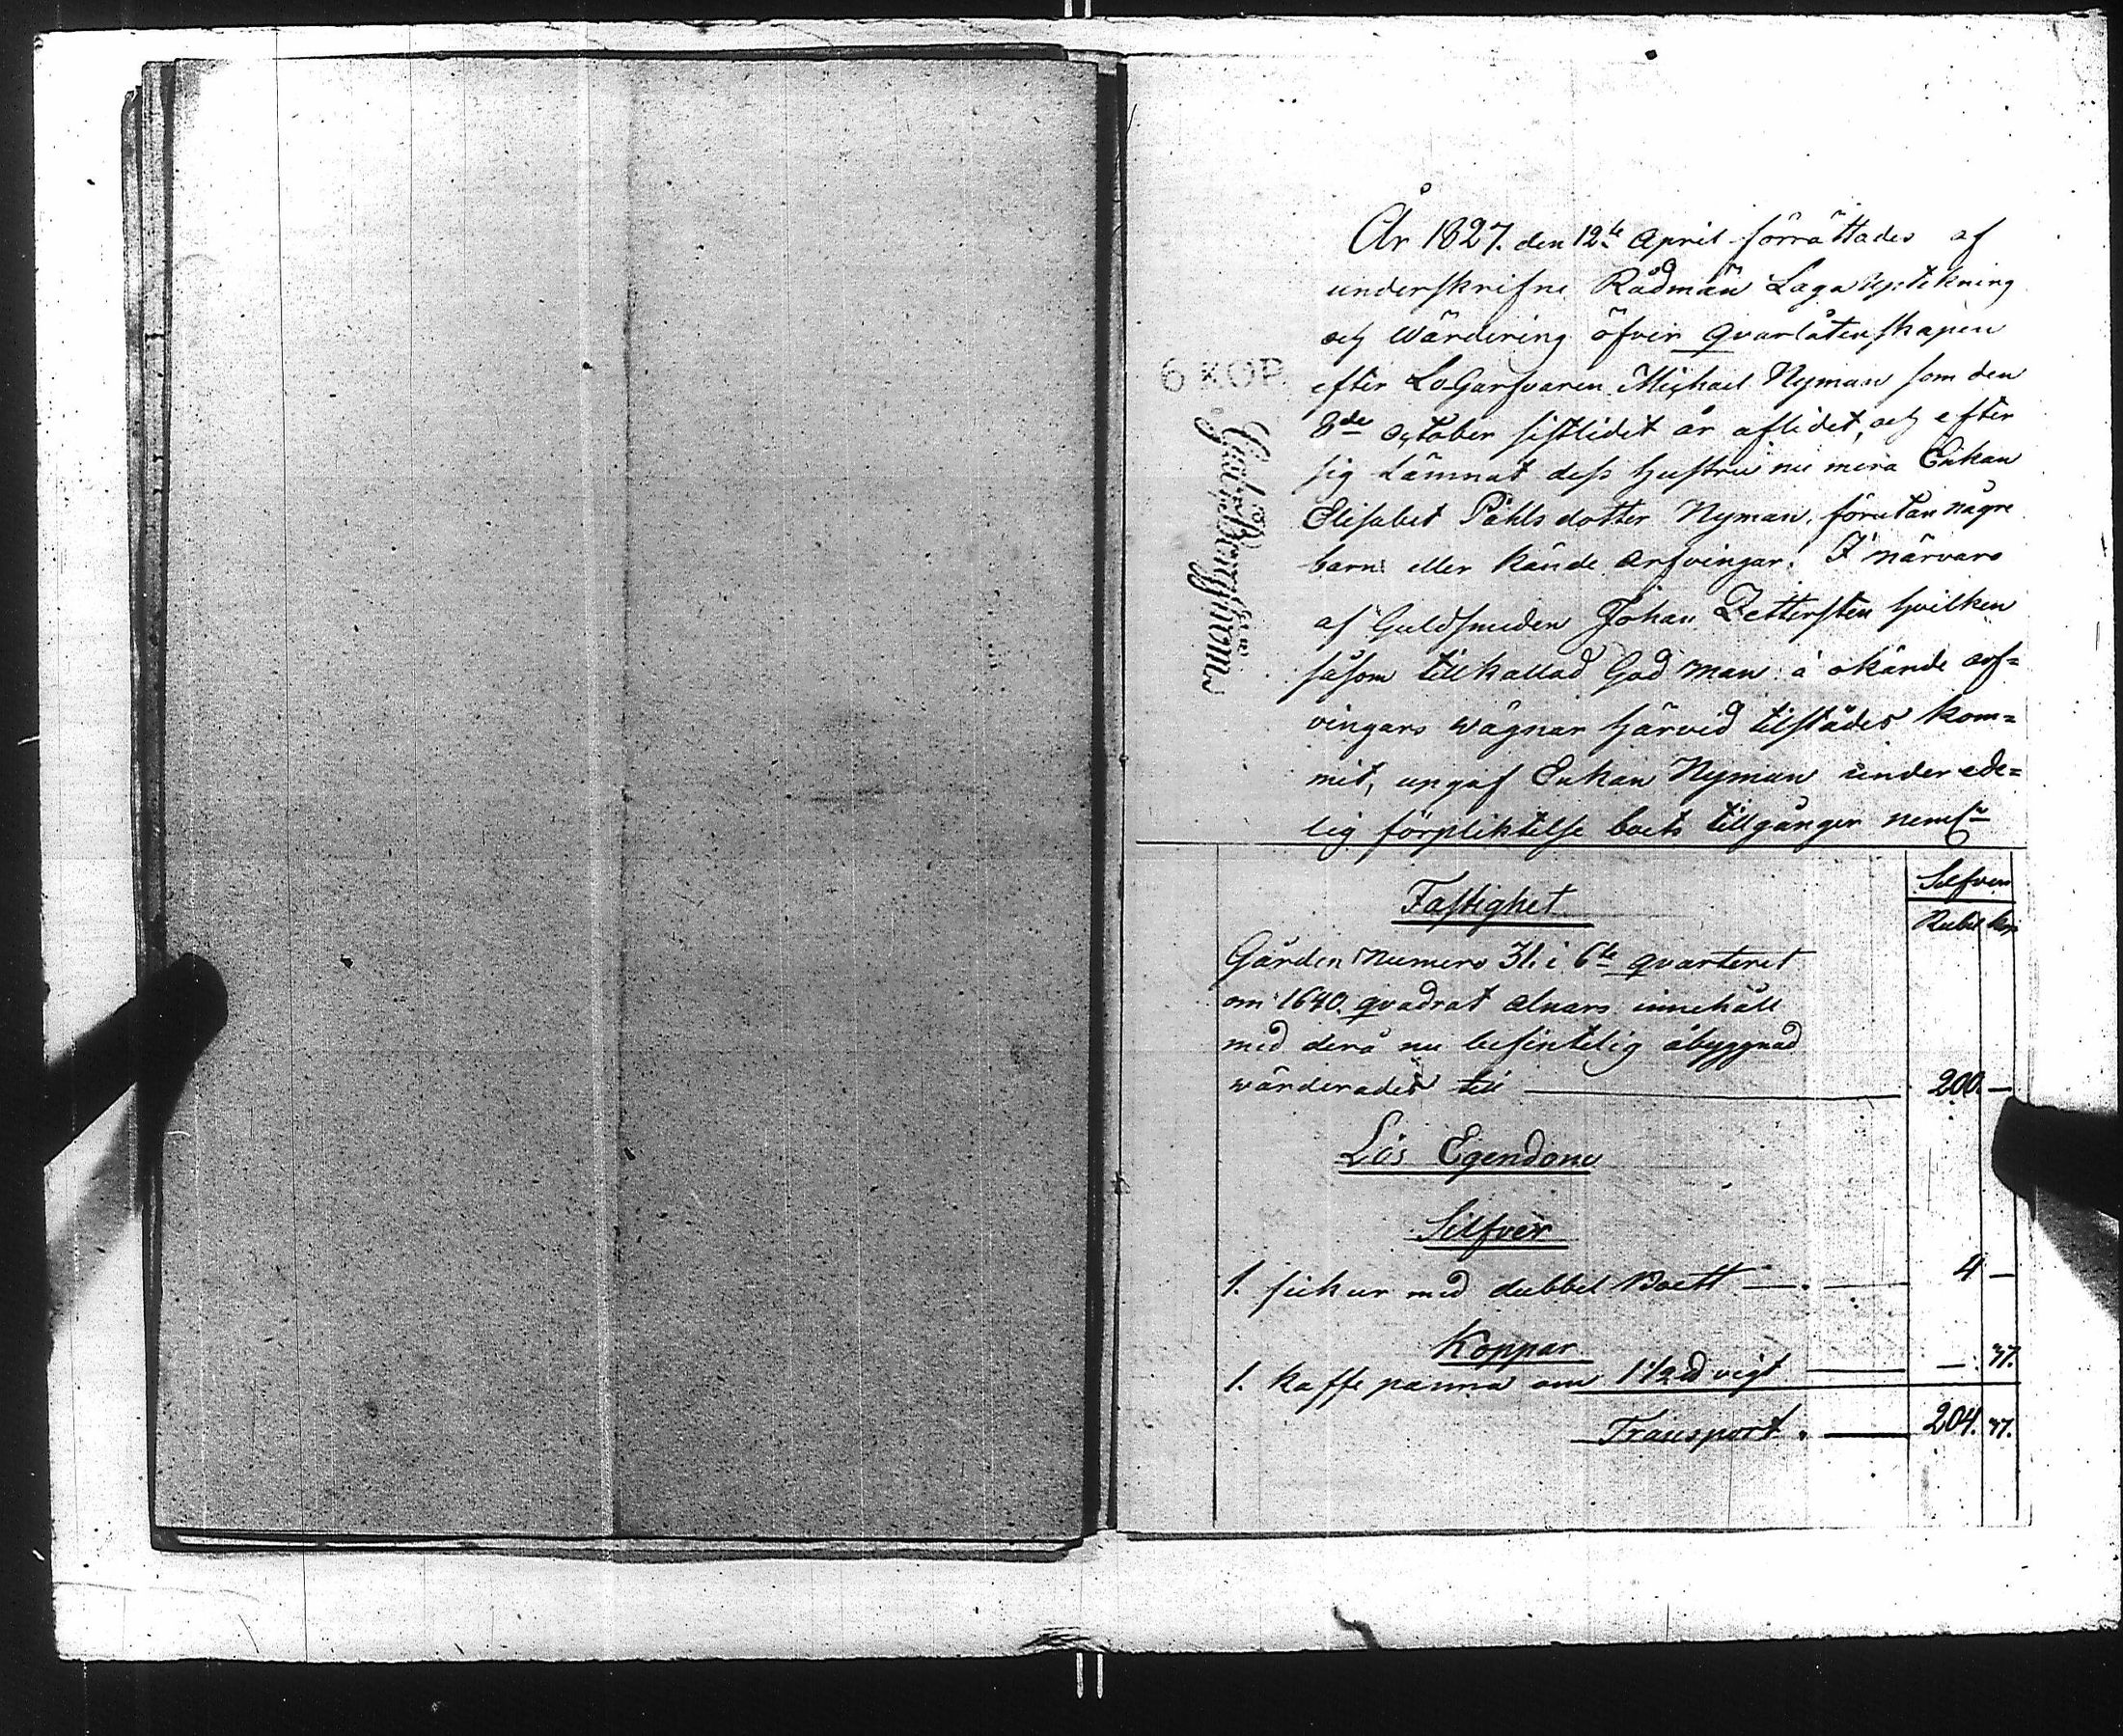 År 1827. den 12te April förrättades af
underskrifne Rådmän Laga Uptekning
och Wärdering öfver qvarlåtenskapen
6 KOP.
efter Lo-Garfvaren Michael Nyman som den
8de October sistlidet år aflidet, och efter
sig Lämnat dess hustru nu mera Enkan
Elisabet Påhlsdotter Nyman, förutan någre
barn eller kände arfvingar. I närvaro
af Guldsmeden Johan Zettersten hvilken
såsom tillkallad God man å okände arf=
vingars wägnar härvid tilstädes kom=
mit, upgaf Enkan Nyman under ede=
lig förpliktelse boets tillgånger neml:n
Silfver
Fastighet
Rubel kop
Gården Numero 31. i 6te qvarteret
om 1640. qvadrat alnars innehåll
med derå nu befintelig åbyggnad
wärderades till 200. —
Lös Egendom
Silfver
1. fickur med dubbel Boett — 4 —
Koppar
1. kaffe panna om 1 1/2 ℔ vigt — 37.
Transport. 204. 37.